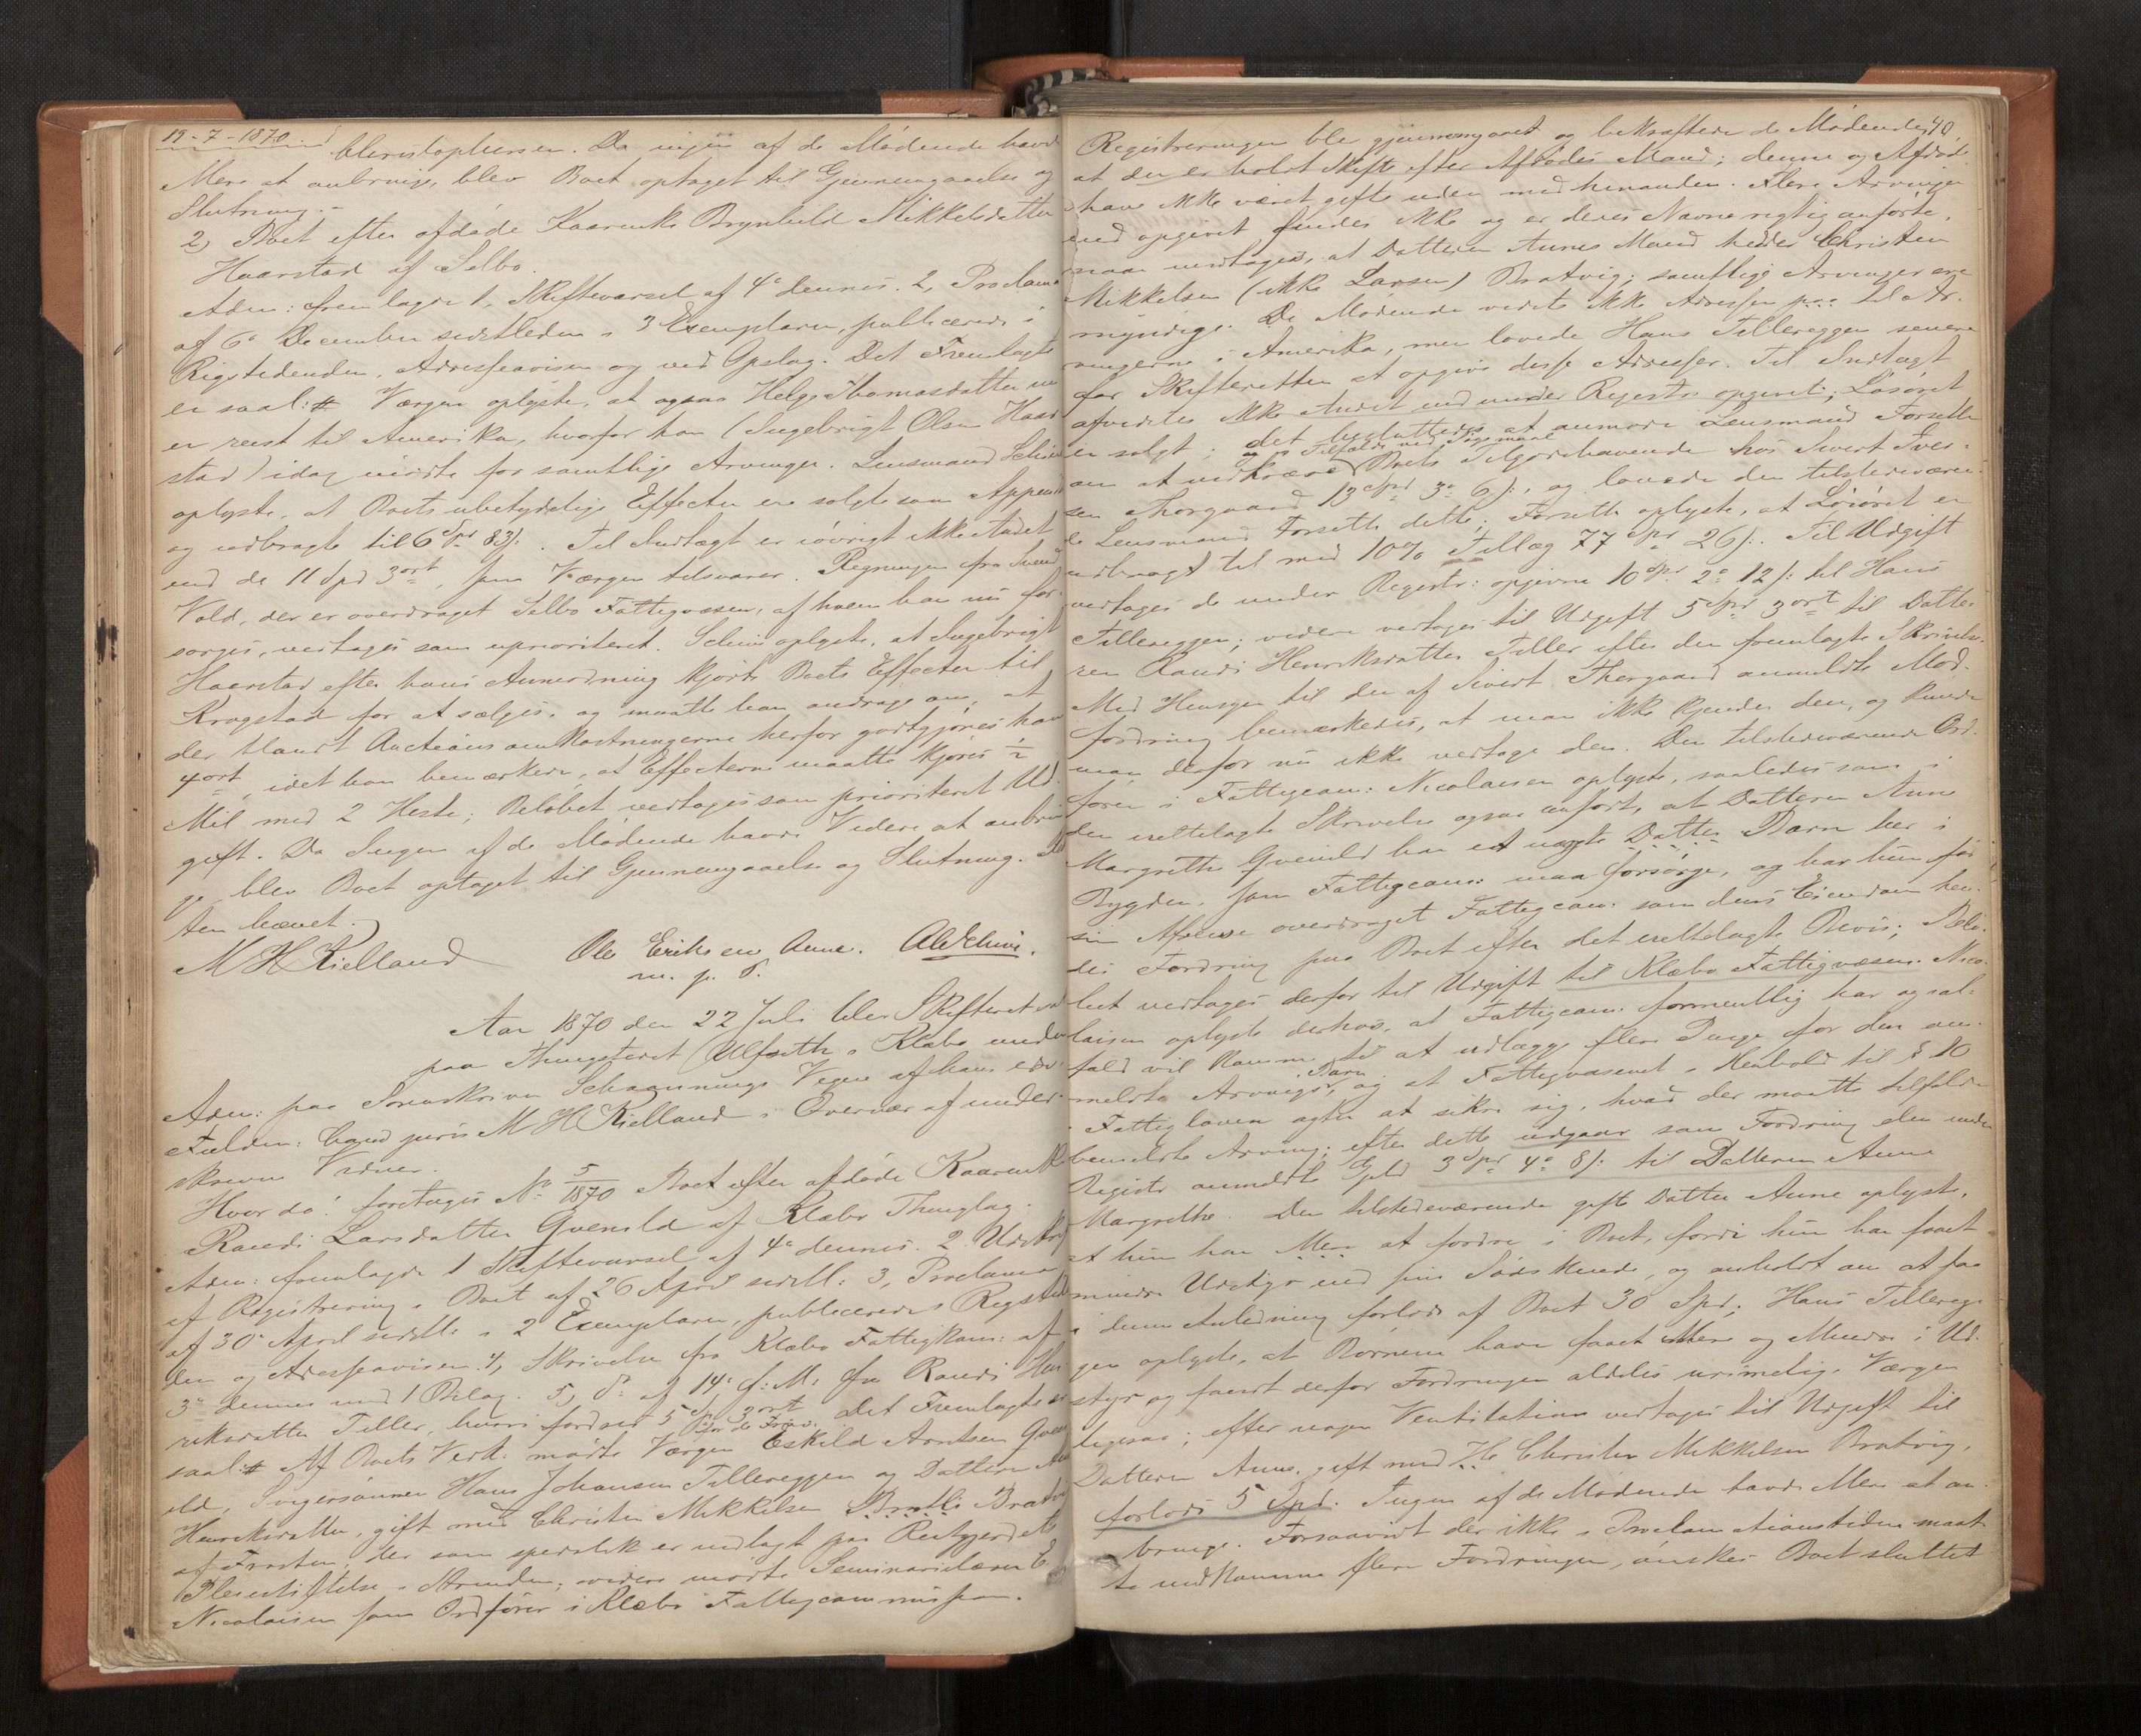 19-7-1870.
Christophersen. Da ingen af de Mødende havde
Mere at anbringe, blev Boet optaget til Gjennemgaaelse og
Slutning.-
2, Boet efter afdøde Kaarenke Brynhild Mikkelsdatter
Haarstad af Selbo.
Adm: fremlagde 1, Skiftevarsel af 4de dennes. 2, Proclama
af 6te December sidstleden i 3 Exemplarer, publicerede i
Rigstidenden, Adresseavisen og ved Opslag. Det Fremlagte
er saal: # Værgen oplyste, at ogsaa Helge Thomasdatter nu
er reist til Amerika, hvorfor han (Ingebrigt Olsen Haar
stad) idag mødte for samtlige Arvinger. Lensmand Schive
oplyste, at Boets ubetydelige Effecter ere solgte som Appendix
og udbragte til 6 Spd 83 s. Til Indtægt er iøvrigt ikke Andet
end de 11 Spd 3 ort, som Værgen tilsvarer. Regningen fra Svend
Vold, der er overdraget Selbo Fattigvæsen, af hvem han nu for-
sørges, vedtages som uprioriteret. Schive oplyste, at Ingebrigt
Haarstad efter hans Anmodning kjørte Boets Effecter til
Krogstad for at sælges, og maatte han andrage om, at
der blandt Auctionsomkostningerne herfor godtgjøres ham
4 ort, idet han bemærkede, at Effecterne maatte kjøres ½
Mil med 2 Heste; Beløbet vedtages som prioriteret Ud-
gift. Da Ingen af de Mødende havde Videre at anbrin
ge blev Boet optaget til Gjennemgaaelse og Slutning. Ret
ten hævet.
M H Kielland Ole Eriksen Aune. Ald Schive.
m. p. P.
Aar 1870 den 22 Juli blev Skifteret sat
paa Thingstedet Ulfseth i Klæbo under
Adm: paa Sorenskriver Schaannings Vegne af hans edsv:
Fuldm: Cand juris M H Kielland i Overvær af under-
skrevne Vidner.
Hvor da: foretoges No 5/1870 Boet efter afdøde Kaaren
Randi Larsdatter Gvenild af Klæbo Thinglag.
Adm: fremlagde 1 Skiftevarsel af 4de dennes. 2 Udskrift
af Registrering i Boet af 26 April sidstl: 3, Proclama
af 30te April sidstl: i 2 Exemplarer, publicerede i Rigstid
den og Adresseavisen. 4, Skrivelse fra Klæbo Fattigkom: af
3die dennes med 1 Bilag. 5, do af 14de s: M: fra Randi Hen
riksdatter Tiller, hvori fordres 5 Spd 3 ort Det Fremlagte er
saal: # Af Boets Vedk: mødte Værgen Eskild Arntsen Gven
ild, Svigersønnen Hans Johansen Tillereggen og Datteren An
Henriksdatter, gift med Christen Mikkelsen Bratli Bratvig
af Frosten, der som spedalsk er indlagt paa Reitgjerdets
Pleiestiftelse i Strinden; videre mødte Seminarielærer E.
Nicolaisen som Ordfører i Klæbo Fattigcommission.
40.
Registreringen ble gjennemgaaet og bekræftede de Mødende,
at der er holdt Skifte efter Afdødes Mand; denne og Afdøde
have ikke været gifte uden med hinanden. Flere Arvinger
end opgivet findes ikke og er deres Navne rigtig anførte,
naar undtages, at Datteren Annes Mand hedder Christen
Mikkelsen (ikke Larsen) Bratvig; samtlige Arvinger ere
myndige. De Mødende vidste ikke Adressen paa til Ar-
vingerne i Amerika, men lovede Hans Tillereggen senere
for Skifteretten at opgive disse Adresser. Til Indtægt
afvidstes ikke Andet end under Registr: opgivet; Løsøret
er solgt; det besluttedes at anmode Lensmand Forseth
om at indkræve og i Tilfælde ved Søgsmaal Boets Tilgodehavende hos Sivert Iver-
sen Thorgaard 13 Spd 3 o 6 s:, og lovede den tilstedeværen-
de Lensmand Forseth dette; Forseth oplyste, at Løsøret er
udbragt til med 10% Tillæg 77 Spd 26 s:. Til Udgift
vedtages de under Registr: opgivne 10 Spd 2 o 12 s: til Hans
Tillereggen; videre vedtages til Udgift 5 Spd 3 ort til Datte-
ren Randi Henriksdatter Tiller efter den fremlagte Skrivelse.
Med Hensyn til den af Sivert Thorgaard anmeldte Mod-
fordring bemærkedes, at man ikke kjender den, og kunde
man derfor nu ikke vedtage den. Den tilstedeværende Ord-
fører i Fattigcom: Nicolaisen oplyste, saaledes som i
den indtelagte Skrivelse ogsaa anført, at Datteren Anne
Margrethe Gvenild har et uægte Datter Barn her i
Bygden, som Fattigcom: maa forsørge, og har hun før
sin Afreise overdraget Fattigcom: som dens Eiendom hen-
des Fordring paa Boet efter det indtelagte Bevis; Belø-
bet vedtages derfor til Udgift til Klæbo Fattigvæsen. Nico-
laisen oplyste derhos, at Fattigcom: formentlig har og ial-
fald vil komme til at udlægge flere Penge for den om-
meldte Arvings Barn, og at Fattigvæsenet i Henhold til § 80
i Fattigloven agter at sikre sig, hvad der maatte tilfalde
bemeldte Arving; efter dette udgaar som Fordring den under
Registr: anmeldte Gjeld 3 Spd 4 o 8 s: til Datteren Anne
Margrethe. Den tilstedeværende gifte Datter Anne oplyste,
at hun har Mere at fordre i Boet, fordi hun har faaet
mindre Udstyr end sine Sødskende, og anholdt om at faa
i denne Anledning forlods af Boet 30 Spd; Hans Tillereg-
gen oplyste, at Børnene have faaet Mere og Mindre i Ud-
styr og fandt derfor Fordringen aldeles urimelig. Værgen
ligesaa; efter nogen Ventilation vedtoges til Udgift til
Datteren Anne, gift med Christen Mikkelsen Bratvig,
forlods 5 Spd. Ingen af de Mødende havde Mere at an-
bringe. Forsaavidt der ikke i Proclamationstiden maat-
te indkomme flere Fordringer, ønskes Boet sluttet